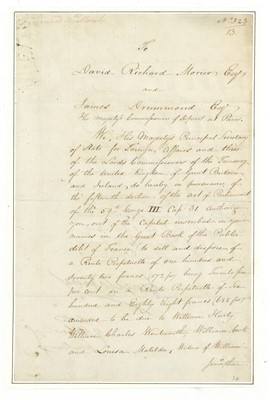 No 323
13.
To
David Richard Morier Esqr,
and
James Drummond Esqr,
His Majesty's Commissioners of deposit at Paris.
We, His Majesty's Principal Secretary
of State for Foreign Affairs and three
of the Lords Commissioners of the Treasury
of the United Kingdom of Great Britain
and Ireland, do hereby in pursuance of
the fifteenth section of the act of Parliament
of the 59th George III. Cap 31 authorize
you, out of the Capital inscribed in your
names in the Great Book of the Public
debt of France, to sell and dispose of
a Rente Perpetuelle of one hundred and
seventy two francs (172 fs) being
per cent on a Rente Perpetuelle of six
hundred and Eighty Eight francs (688 fs)
to be due to William
William Charles Wentworth, William
and Louisa Matilda, Widow of William